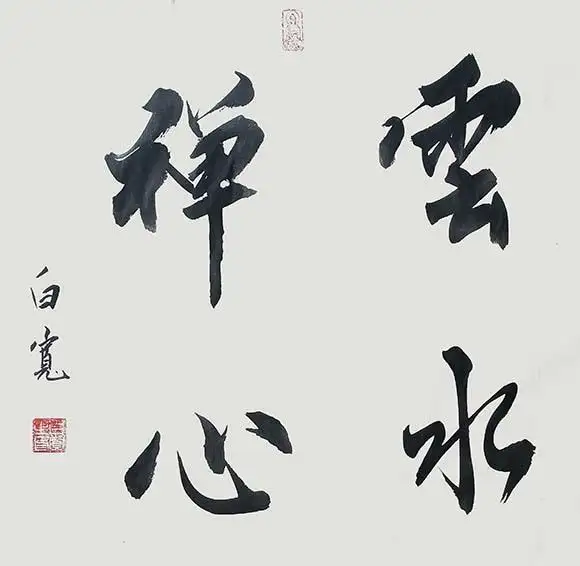 雲水
禅心
白寬